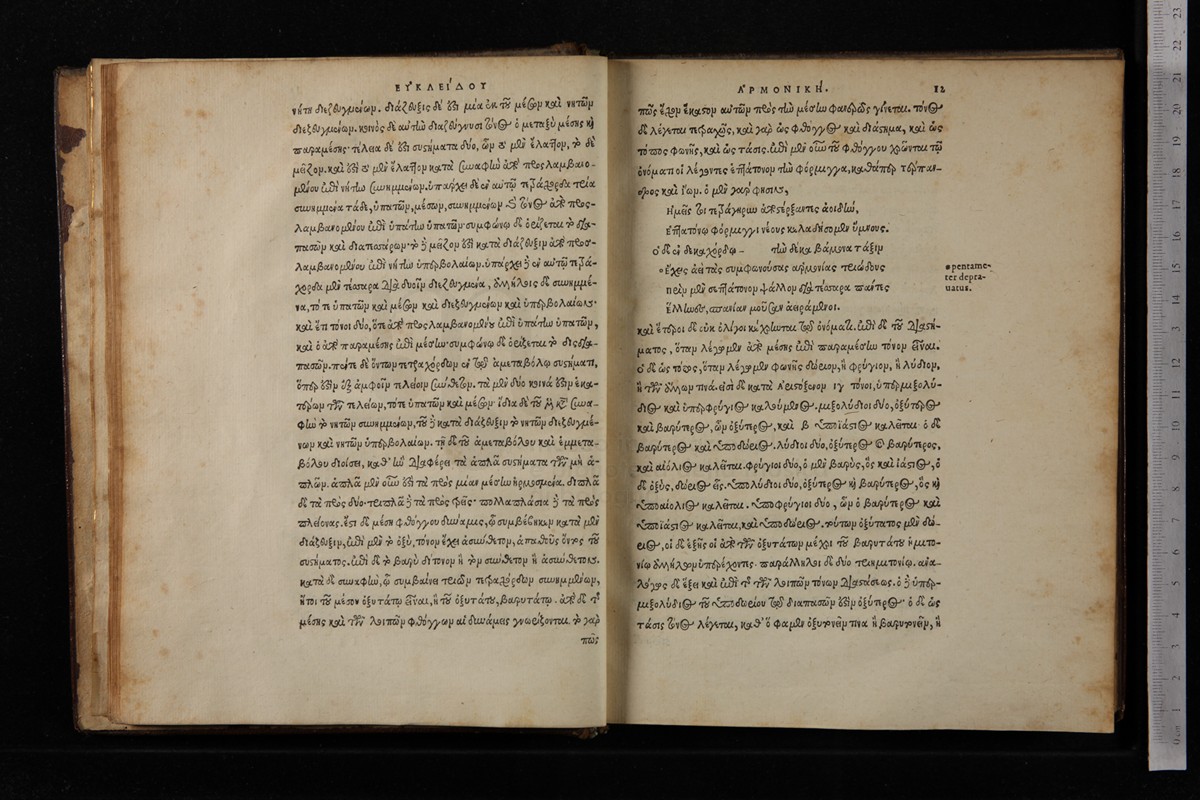 ΕΥΚΛΕΊΔΟΥ
νήτη διεζευγμένων. διάζευξις δέ ἐστι μία ἐκ τοῦ μέσων καὶ νητῶν
διεζευγμένων. κοινὸς δὲ αὐτὼ διαζεύγνυσι τόνος ὁ μεταξὺ μέσης καὶ
παραμέσης· τέλεια δέ ἐστι συστήματα δύο, ὧν τὸ μὲν ἔλαττον, τὸ δὲ
μεῖζον. καὶ ἔστι τὸ μὲν ἔλαττον κατὰ συναφὴν ἀπὸ προσλαμβανο-
μένου ἐπὶ νήτην συνημμένων. ὑπάρχει δὲ ἐν αὐτῷ τετράχορδα τρία
συνημμένα τάδε, ὑπατῶν, μέσων, συνημμένων καὶ τόνος ἀπὸ προσ-
λαμβανομένου ἐπὶ ὑπάτην ὑπατῶν· συμφώνῳ δὲ ὁρίζεται τῷ διὰ
πασῶν καὶ διατεσσάρων· τὸ δὲ μεῖζον ἐστὶ κατὰ διάζευξιν ἀπὸ προσ-
λαμβανομένου ἐπὶ νήτην ὑπερβολαίων. ὑπάρχει δὲ ἐν αὐτῷ τετρά-
χορδα μὲν τέσσαρα διὰ δυοῖν διεζευγμένα, ἀλλήλοις δὲ συνημμέ-
να, τό τε ὑπατῶν καὶ μέσων καὶ διεζευγμένων καὶ ὑπερβολαίων·
καὶ ἔτι τόνοι δύο, ὅτε ἀπὸ προσλαμβανομένου ἐπὶ ὑπάτην ὑπατῶν,
καὶ ὁ ἀπὸ παραμέσης ἐπὶ μέσην· συμφώνῳ δὲ ὁρίζεται τῷ δὶς διὰ
πασῶν. πέντε δὲ ὄντων τετραχόρδων ἐν τῷ ἀμεταβόλῳ συστήματι,
ὅπερ ἐστὶν ἐξ ἀμφοῖν τελείοιν συνθετον. τὰ μὲν δύο κοινά ἐστιν ἑκα-
τέρων τῶν τελείων, τότε ὑπατῶν καὶ μέσων· ἴδια δὲ τοῦ μὲν κατὰ συνα-
φὴν τὸ νητῶν συνημμένων, τοῦ δὲ κατὰ διάζευξιν τὸ νητῶν διεζευγμέ-
νων καὶ νητῶν ὑπερβολαίων. τῇ δὲ τοῦ ἀμεταβόλου καὶ ἐμμετα-
βόλου διοίσει, καθ' ἣν διαφέρει τὰ ἁπλᾶ συστήματα τῶν μὴ ἁ-
πλῶν. ἁπλᾶ μὲν οὖν ἐστι τὰ πρὸς μίαν μέσην ἡρμοσμένα. διπλᾶ
δὲ τὰ πρὸς δύο· τριπλᾶ δὲ τὰ πρὸς τρεῖς· πολλαπλάσια δὲ τὰ πρὸς
πλείονας. ἔστι δὲ μέση φθόγγου δύναμις, ᾧ συμβέβηκεν κατὰ μὲν
διάζευξιν, ἐπὶ μὲν τὸ ὀξὺ, τόνον ἔχει ἀσύνθετον, ἀπαθοῦς ὄντος τοῦ
συστήματος. ἐπὶ δὲ τὸ βαρὺ δίτονον ἢ τὸν σύνθετον ἢ ἀσύνθετον.
κατὰ δὲ συναφὴν, ᾧ συμβαίνει τριῶν τετραχόρδων συνημμένων,
ἤτοι τοῦ μέσου ὀξυτάτῳ εἶναι, ἢ τοῦ ὀξυτάτου, βαρυτάτῳ. ἀπὸ δὲ τῆς
μέσης καὶ τῶν λοιπῶν φθόγγων αἱ δυνάμεις γνωρίζονται. τὸ γὰρ
πῶς
ΑΡΜΟΝΙΚΉ.
12
πῶς ἔχον ἕκαστον αὐτῶν πρὸς τὴν μέσην φανερῶς γίνεται. τόνος
δὲ λέγεται τετραχῶς, καὶ γὰρ ὡς φθόγγος καὶ διάστημα, καὶ ὡς
τόπος φωνῆς, καὶ ὡς τάσις. ἐπὶ μὲν οὖν τοῦ φθόγγου χρῶνται τῷ
ὀνόματι οἱ λέγοντες ἑπτάτονον τὴν φόρμιγγα, καθάπερ τέρπαν-
δρος καὶ ἴων. ὁ μὲν γάρ φησιν,
Ἡμεῖς τοι τετράγηρυν ἀποστέρξαντες ἀοιδὴν,
ἑπτατόνῳ φόρμιγγι νέους κελαδήσομεν ὕμνους.
ὁ δὲ ἐν δεκαχόρδῳ – τὴν δεκαβάμονα τάξιν
*ἔχεις ἀεὶ τὰς συμφωνούσας ἁρμονίας τριώδους
πρὶν μὲν σ' ἑπτάτονον ψάλλον διὰ τέσσαρα πάντες
ἕλλωες, σπανίαν μοῦσαν ἀειράμενοι.
*pentame-
ter depra-
uatus.
καὶ ἕτεροι δὲ οὐκ ὀλίγοι κέχρωνται τῷ ὀνόματι. ἐπὶ δὲ τοῦ διαστή-
ματος, ὅταν λέγωμεν ἀπὸ μέσης ἐπὶ παραμέσην τόνον εἶναι.
ὁ δὲ ὡς τόπος, ὅταν λέγωμεν φωνῆς δώριον, ἢ φρύγιον, ἢ λύδιον,
ἢ τῶν ἄλλων τινά. εἰσὶ δὲ κατὰ Ἀριστόξενον ιγ τόνοι, ὑπερμιξολύ-
διος καὶ ὑπερφρύγιος καλούμενος. μιξολύδιοι δύο, ὀξύτερος
καὶ βαρύτερος, ὧν ὀξύτερος, καὶ β ὑποϊάστιος καλεῖται· ὁ δὲ
βαρύτερος καὶ ὑποδώριος. λύδιοι δύο, ὀξύτερος καὶ βαρύτερος,
καὶ αἰόλιος καλεῖται. φρύγιοι δύο, ὁ μὲν βαρὺς, ὃς καὶ ἰάστιος, ὁ
δὲ ὀξὺς, δώριος εἷς. ὑπολύδιοι δύο, ὀξύτερος καὶ βαρύτερος, ὃς καὶ
ὑποαίολιος καλεῖται. ὑποφρύγιοι δύο, ὧν ὁ βαρύτερος καὶ
ὑποϊάστιος καλεῖται, καὶ ὑποδώριος. τούτων ὀξύτατος μὲν δώ-
ριος, οἱ δὲ ἑξῆς οἱ ἀπὸ τῶν ὀξυτάτων μέχρι τοῦ βαρυτάτου ἡμιτο-
νίῳ ἀλλήλων ὑπερέχοντες· παράλληλοι δὲ δύο τριημιτονίῳ. ἀνα-
λόγως δὲ ἕξει καὶ ἐπὶ τῆς τῶν λοιπῶν τόνων διαστάσεως. ὁ δὲ ὑπερ-
μιξολύδιος τοῦ ὑποδωρίου τῷ διαπασῶν ἐστὶν ὀξύτερος· ὁ δὲ ὡς
τάσις τόνος λέγεται, καθ' ὃ φαμὲν ὀξυτονεῖν τινα ἢ βαρυτονεῖν, ἢ